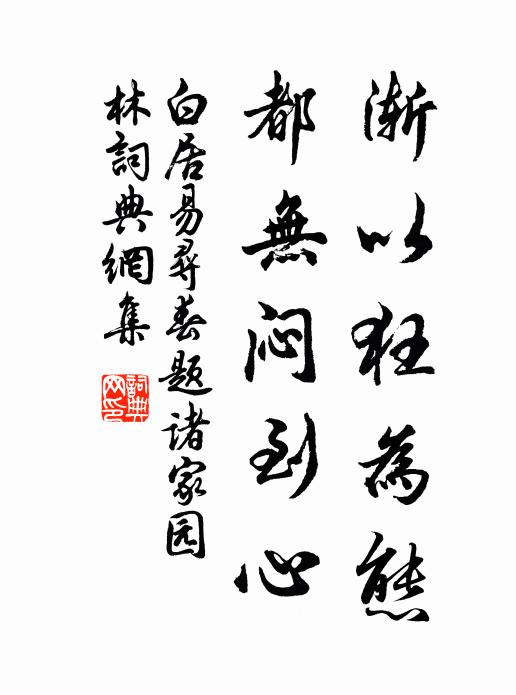 渐以狂為態
都無闷到心
白居易尋春题诸家园
林詞典網集
詞典网印